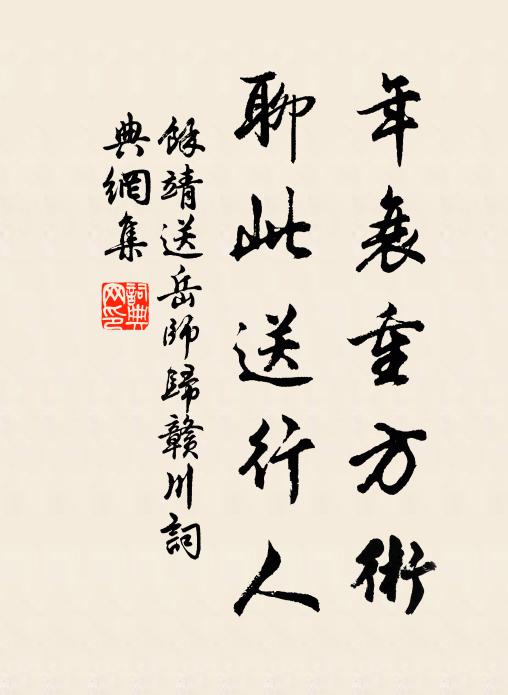 年衰重方術
聊此送行人
餘靖送岳師歸贛川詞
典網集
詞典
网印